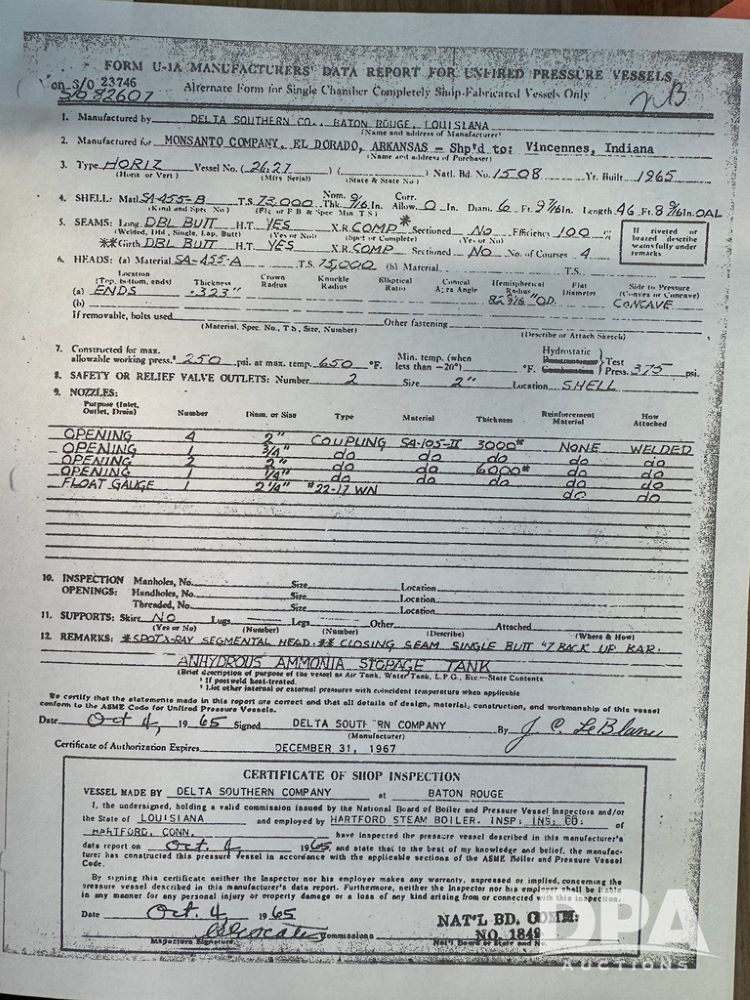 FORM U-1A MANUFACTURERS' DATA REPORT FOR UNFIRED PRESSURE VESSELS
on S/O 23746
S/O 82607
Alternate Form for Single Chamber Completely Shop-Fabricated Vessels Only
NB
1. Manufactured by DELTA SOUTHERN CO., BATON ROUGE, LOUISIANA
(Name and address of Manufacturer)
2. Manufactured for MONSANTO COMPANY, EL DORADO, ARKANSAS - Shp'd to: Vincennes, Indiana
(Name and address of Purchaser)
3. Type HORIZ Vessel No. (2627) ( ) Natl. Bd. No. 1508 Yr. Built 1965
(Horiz or Vert) (Mfrs Serial) (State & State No)
4. SHELL: Matl SA-455-B T.S. 73,000 Nom. Thk. 9/16 In. Corr. Allow. 0 In. Diam. 6 Ft. 9 7/16 In. Length 46 Ft. 8 9/16 In. OAL
(Kind and Spec No)
5. SEAMS: Long DBL BUTT H.T. YES X.R. COMP* Sectioned No Efficiency 100 %
(Welded, Dbl, Single, Lap, Butt) (Yes or No) (Spot or Complete) (Yes or No)
If riveted or brazed describe seams fully under remarks
**Girth DBL BUTT H.T. YES X.R. COMP Sectioned NO No. of Courses 4
6. HEADS: (a) Material SA-455-A T.S. 75,000 (b) Material T.S.
Location (Top, bottom, ends) Thickness Crown Radius Knuckle Radius Elliptical Ratio Conical Apex Angle Hemispherical Radius Flat Diameter Side to Pressure (Convex or Concave)
(a) ENDS .323" 82 3/16 "OD. CONCAVE
(b)
If removable, bolts used Other fastening
(Material, Spec. No., T.S., Size, Number) (Describe or Attach Sketch)
7. Constructed for max. allowable working press.² 250 psi. at max. temp. 650 °F. Min. temp. (when less than -20°) °F. Hydrostatic Test Press. 375 psi.
8. SAFETY OR RELIEF VALVE OUTLETS: Number 2 Size 2" Location SHELL
9. NOZZLES:
Purpose (Inlet, Outlet, Drain) Number Diam. or Size Type Material Thickness Reinforcement Material How Attached
OPENING 4 2" COUPLING SA-105-II 3000# NONE WELDED
OPENING 1 3/4" do do do do do
OPENING 2 do do do do do
OPENING 1 1/4" do do 6000# do do
FLOAT GAUGE 1 2 1/4" #22-17 WN do do
10. INSPECTION OPENINGS: Manholes, No. Size Location
Handholes, No. Size Location
Threaded, No. Size Location
11. SUPPORTS: Skirt NO Lugs Legs Other Attached
(Yes or No) (Number) (Number) (Describe) (Where & How)
12. REMARKS: *SPOT X-RAY SEGMENTAL HEAD. ** CLOSING SEAM SINGLE BUTT BACK UP BAR.
ANHYDROUS AMMONIA STORAGE TANK
(Brief description of purpose of the vessel as Air Tank, Water Tank, L.P.G., Etc.—State Contents
¹ If postweld heat-treated.
² List other internal or external pressures with coincident temperature when applicable
We certify that the statements made in this report are correct and that all details of design, material, construction, and workmanship of this vessel
conform to the ASME Code for Unfired Pressure Vessels.
Date Oct 4, 1965 Signed DELTA SOUTHERN COMPANY By J. C. LeBlanc
(Manufacturer)
Certificate of Authorization Expires DECEMBER 31, 1967
CERTIFICATE OF SHOP INSPECTION
VESSEL MADE BY DELTA SOUTHERN COMPANY at BATON ROUGE
I, the undersigned, holding a valid commission issued by the National Board of Boiler and Pressure Vessel Inspectors and/or
the State of LOUISIANA and employed by HARTFORD STEAM BOILER. INSP: INS: CO: of
HARTFORD, CONN. have inspected the pressure vessel described in this manufacturer's
data report on Oct. 4, 1965, and state that to the best of my knowledge and belief, the manufac-
turer has constructed this pressure vessel in accordance with the applicable sections of the ASME Boiler and Pressure Vessel
Code.
By signing this certificate neither the Inspector nor his employer makes any warranty, expressed or implied, concerning the
pressure vessel described in this manufacturer's data report. Furthermore, neither the Inspector nor his employer shall be liable
in any manner for any personal injury or property damage or a loss of any kind arising from or connected with this inspection.
Date Oct. 4, 1965
NAT'L BD. COMM:
Commissions NO. 1849
Inspectors Signature Nat'l Board or State and No.
DPA
AUCTIONS